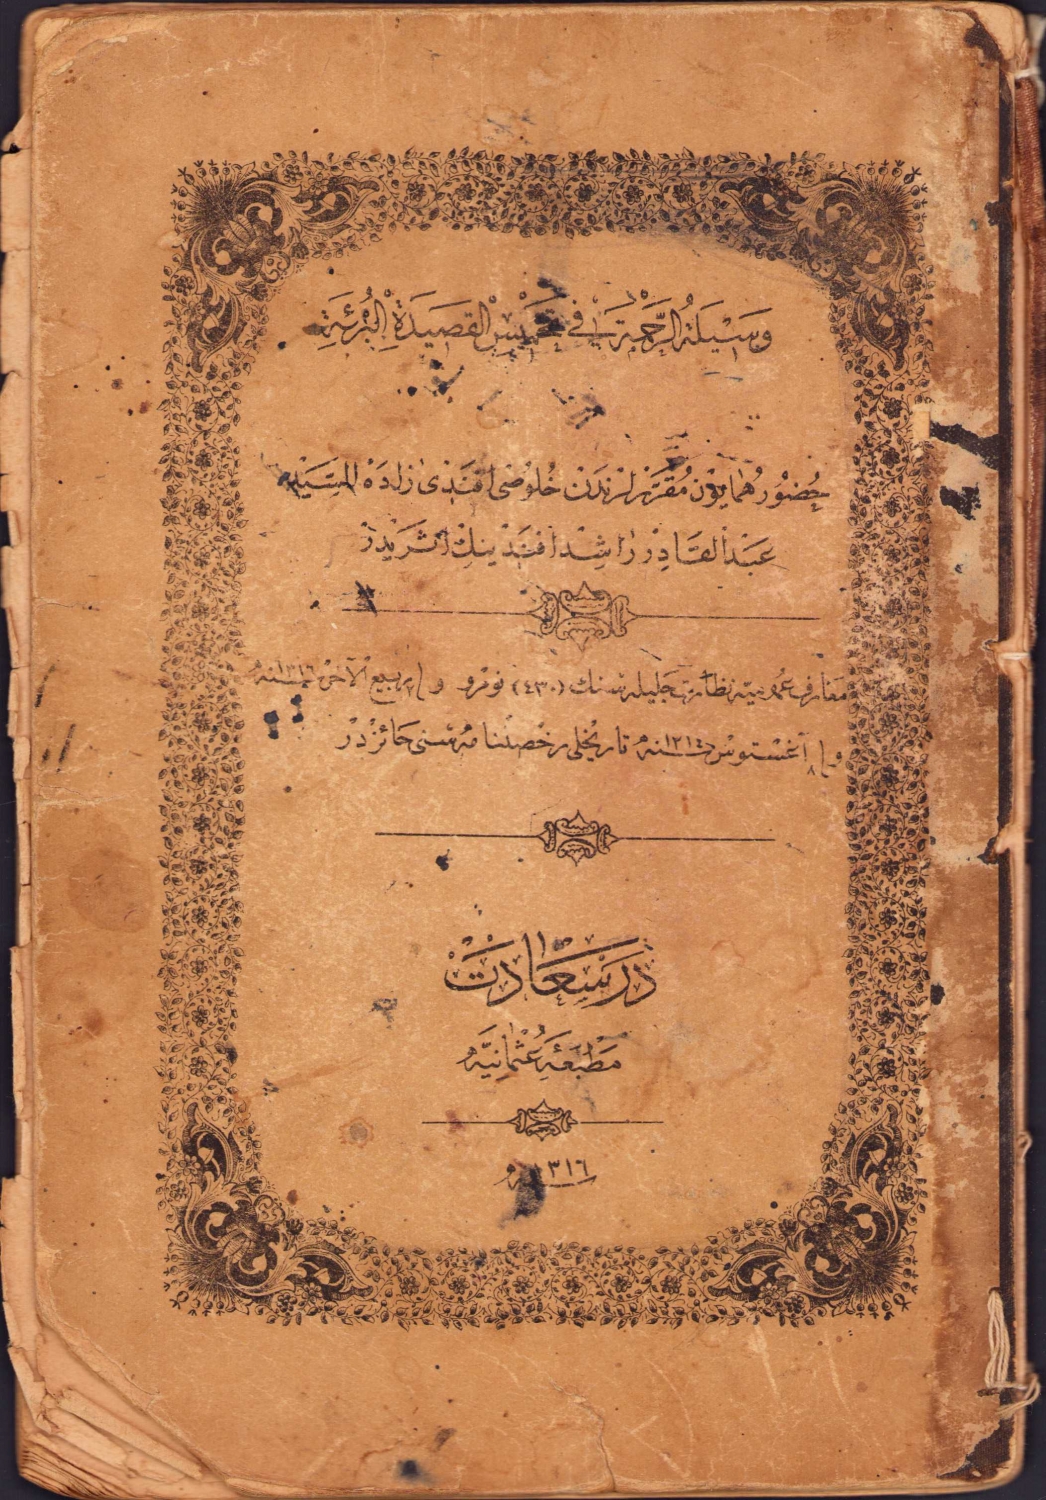 وَسِيلَةُ الرَّحْمَةِ فِي تَخْمِيسِ الْقَصِيدَةِ الْبُرْئَةِ
حُضُورِ هُمَايُونْ مُقَرِّرْلَرِنْدَنْ خُلُوصِی اَفَنْدِی زَادَهْ
عَبْدُ الْقَادِرْ رَاشِدْ اَفَنْدِینِكْ اَثَرِیدِرْ
معارف عمومیه نظارت جلیله‌سنك (٤٣٠) نومرو و ١ ربیع الآخر ١٣١٦ سنه
و ٨ اغستوس ١٣١٤ سنه تاریخلی رخصتنامه‌سنی حائزدر
دَرْسَعَادَتْ
مَطْبَعَهٔ عُثْمَانِیَّه
١٣١٦